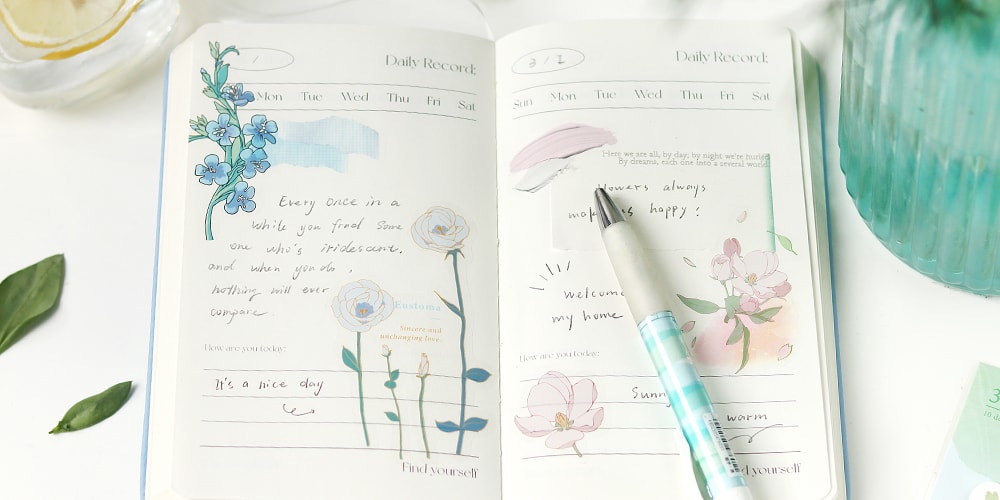 Daily Record:
Mon Tue Wed Thu Fri Sat
Every once in a
while you find some
one who's iridescent.
and when you do,
nothing will ever
compare.
Eustoma
Sincere and
unchanging love.
How are you today:
It's a nice day
Find yourself
Daily Record:
Sun Mon Tue Wed Thu Fri Sat
Here we are all, by day; by night we're hurled
By dreams, each one into a several world
always
happy!
welcome
my home
How are you today:
Sunny
warm
yourself